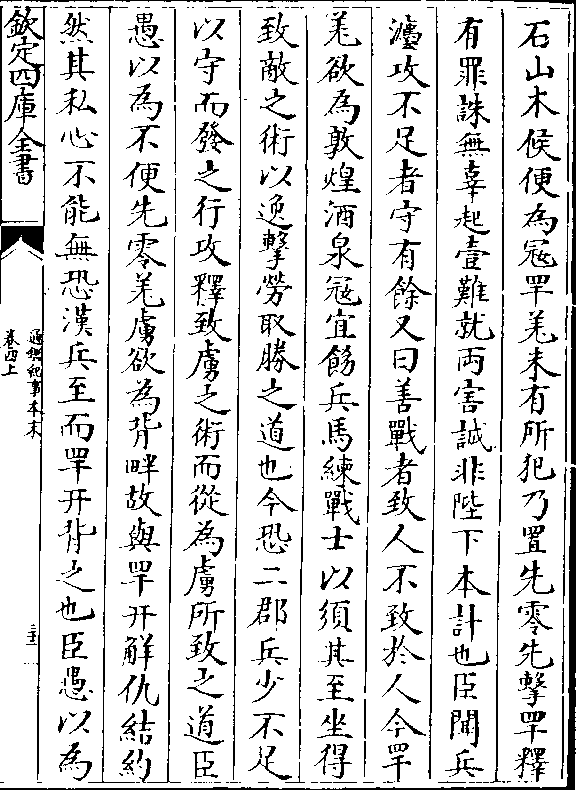 石山木候便為冦罕羌未有所犯乃置先零先擊罕釋
有罪誅無辜起壹難就兩害誠非陛下本計也臣聞兵
灋攻不足者守有餘又曰善戰者致人不致於人今罕
羌欲為敦煌酒泉冦宜飭兵馬練戰士以須其至坐得
致敵之術以逸擊勞取勝之道也今恐二郡兵少不足
以守而發之行攻釋致虜之術而從為虜所致之道臣
愚以為不便先零羌虜欲為背畔故與罕幵解仇結約
然其私心不能無恐漢兵至而罕幵背之也臣愚以為
欽定四庫全書
通鑑紀事本末
卷四上